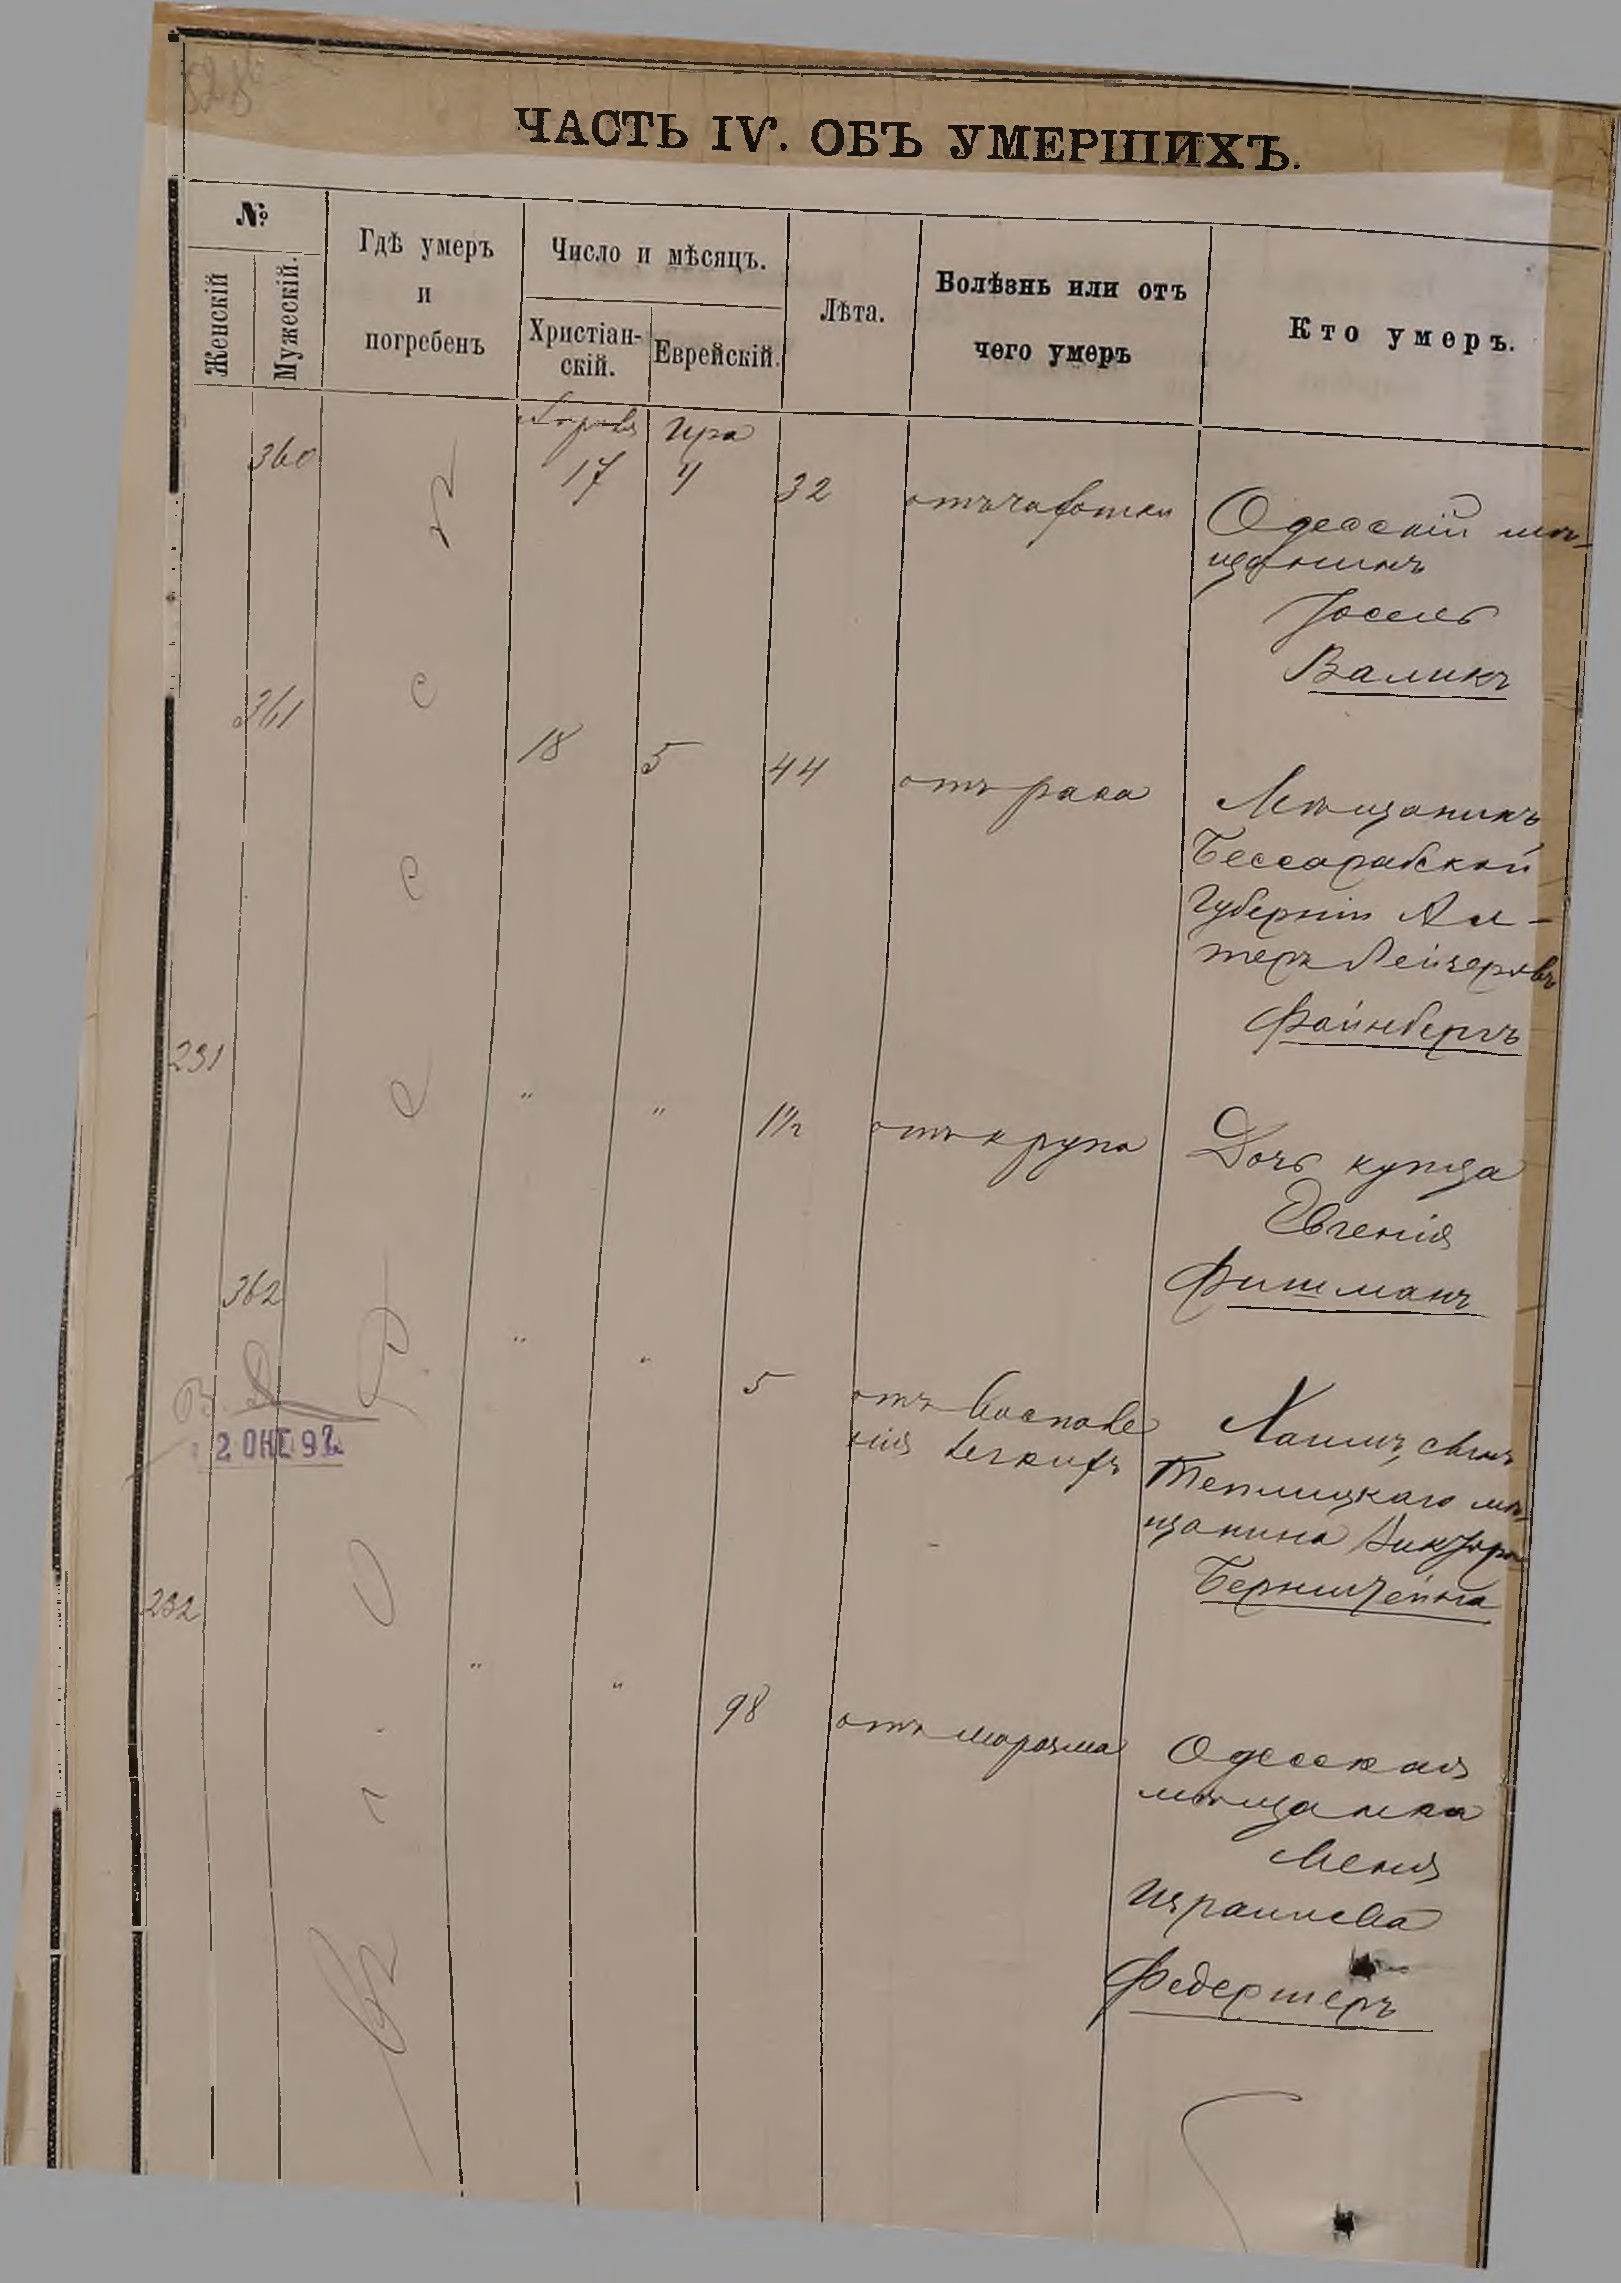 ЧАСТЬ IV. ОБЪ УМЕРШИХЪ.
№
Женскій
Мужескій.
Гдѣ умеръ
и
погребенъ
Число и мѣсяцъ.
Христіан-
скій.
Еврейскій.
Лѣта.
Болѣзнь или отъ
чего умеръ
Кто умеръ.
Апрѣля Ира
360 17 4 32 отъ чахотки Одесскій мѣ-
щанинъ
Іосель
Валикъ
361 18 5 44 отъ рака Мѣщанинъ
Бессарабской
Губерніи Аль-
теръ Лейзеровъ
Файнбергъ
231 " " 1½ отъ крупа Дочь купца
Евгенія
Фишманъ
362 " " 5 отъ воспале
нія легкихъ
Хаимъ, сынъ
Теплицкаго мѣ-
щанина Виктора
Бернштейна
2 ОКТ 92
232 " " 98 отъ маразма Одесская
мѣщанка
Меня
Израилева
Федершеръ
въ г. Одессѣ